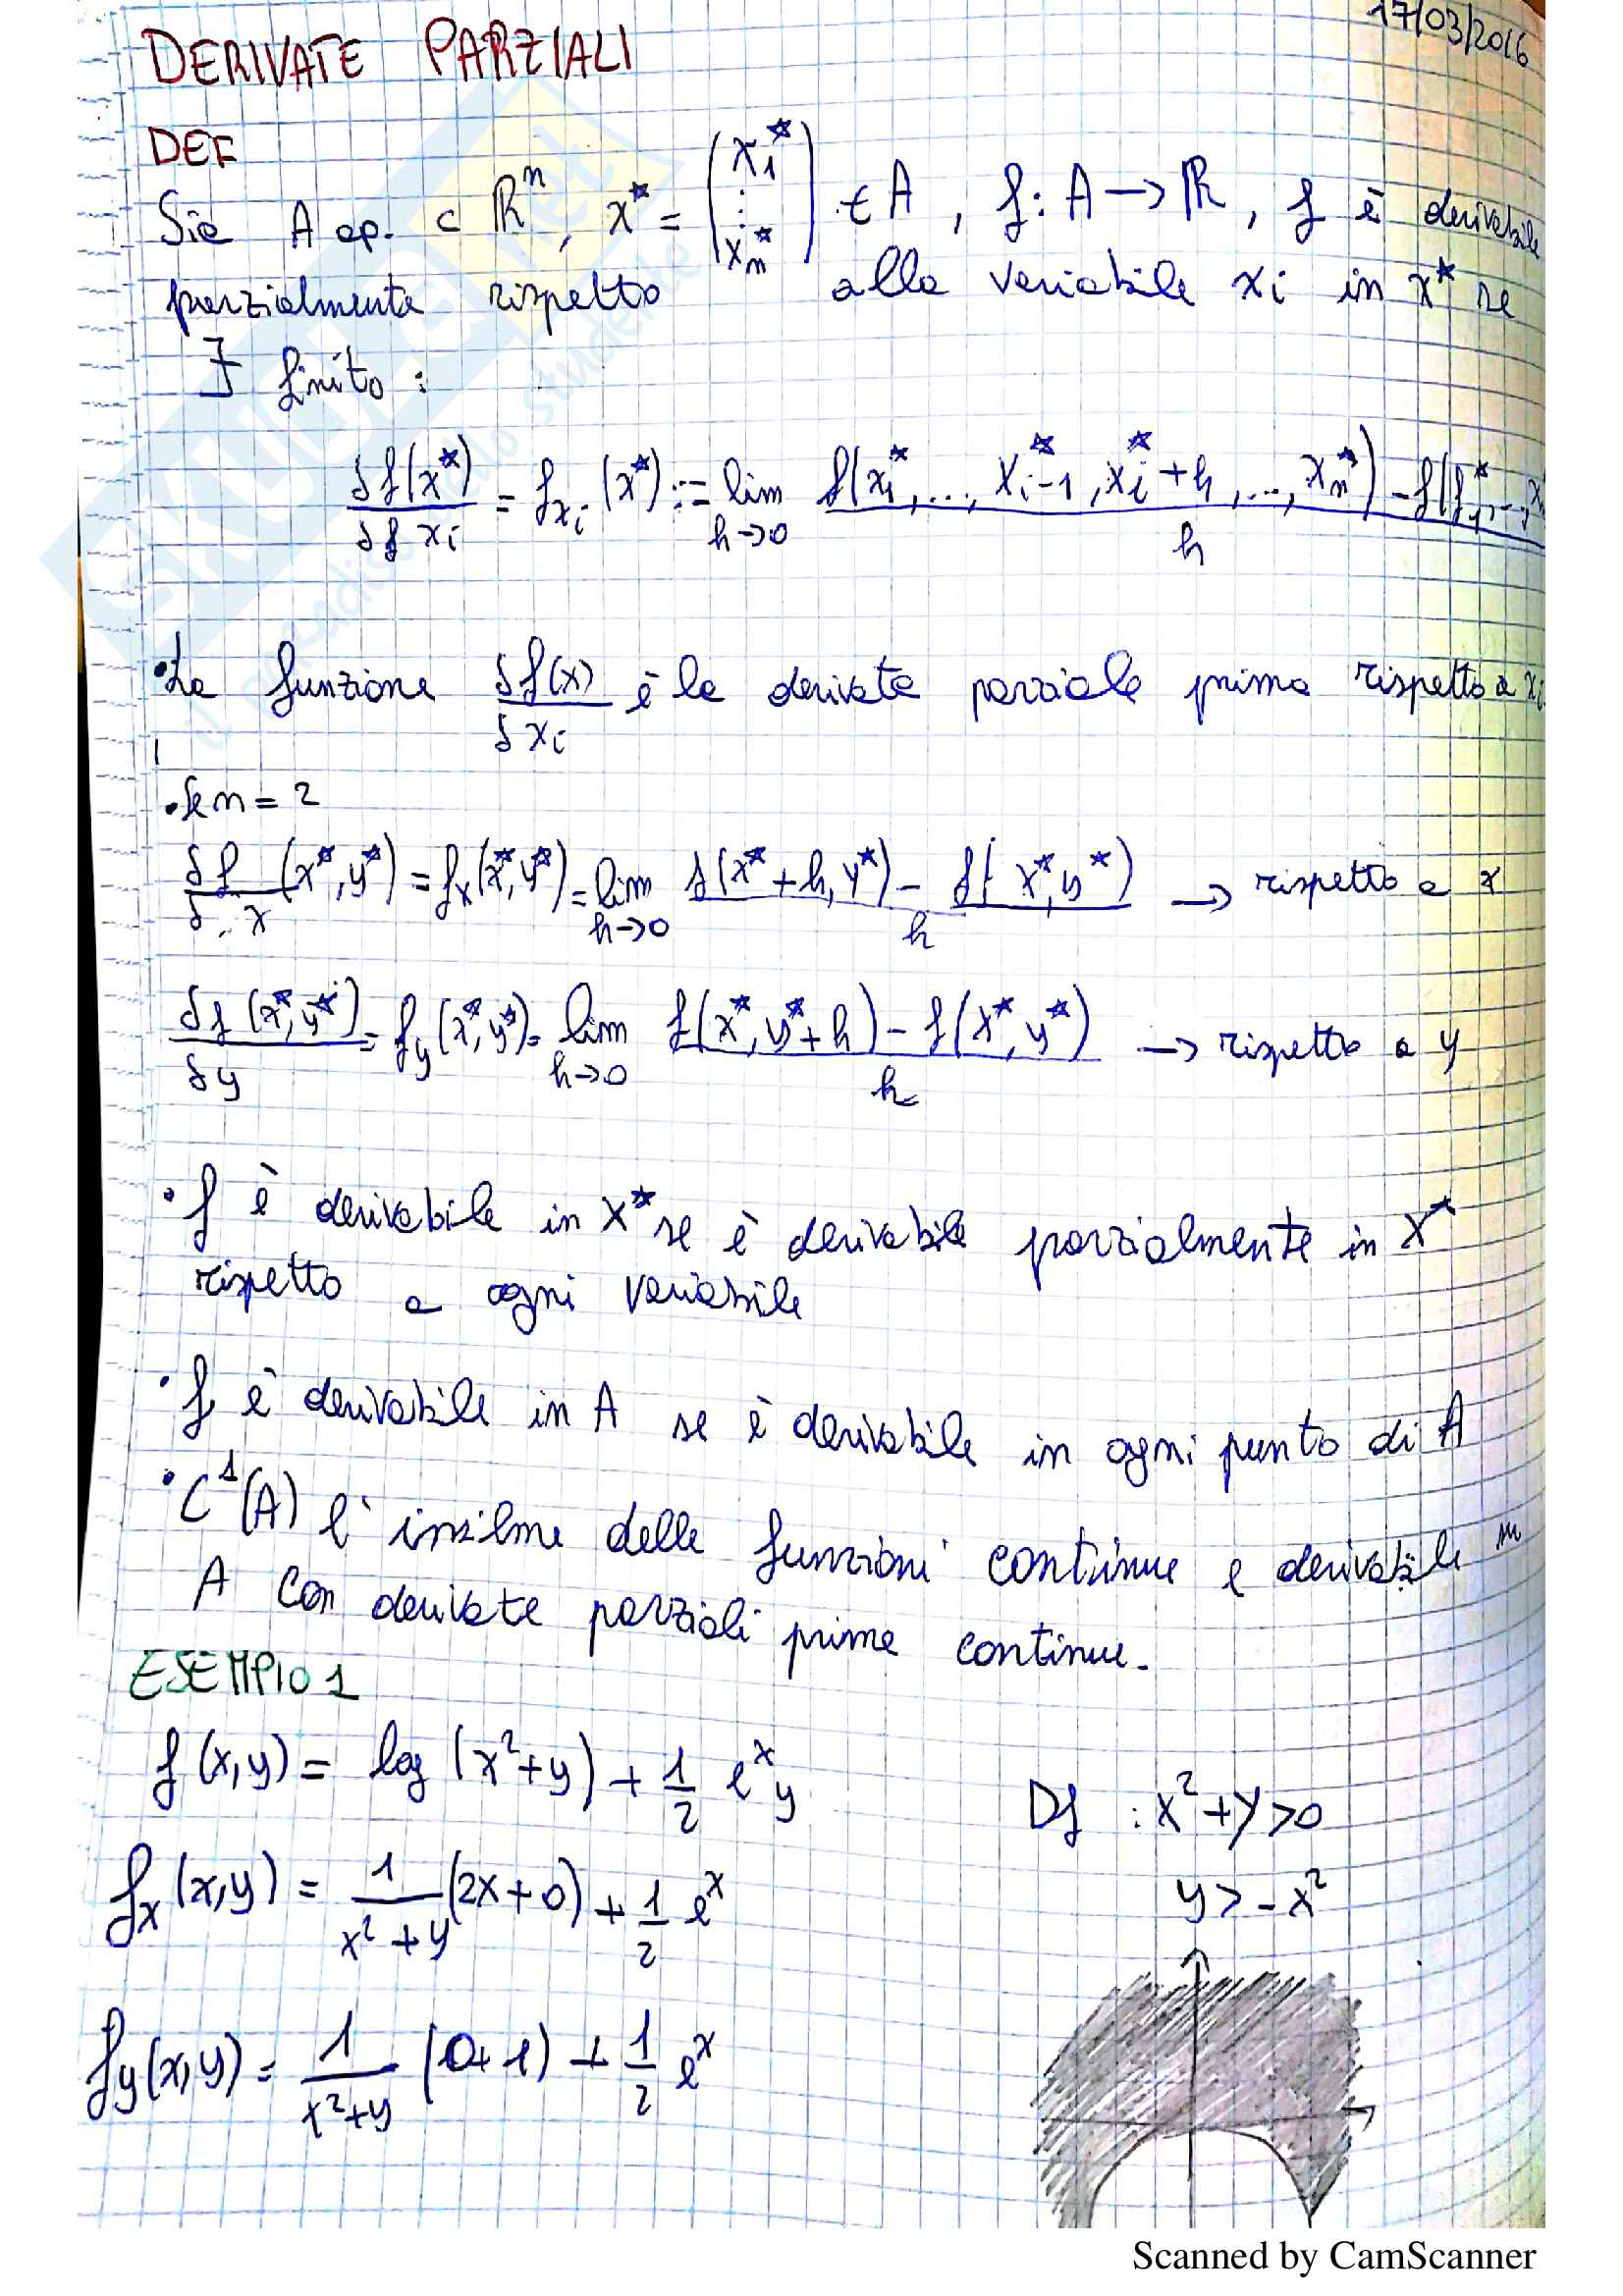 17/03/2016
DERIVATE PARZIALI
DEF
Sia A ap. ⊂ ℝⁿ, x* = (x₁* ⋮ xₙ*) ∈ A, f: A → ℝ, f è derivabile
parzialmente rispetto alla variabile xi in x* se
∃ finito:
δf(x*)/δf xi = f_xi (x*) := lim h→0 f(x₁*, ..., x*i-1, xi* + h, ..., xₙ*) - f(
/ h
• La funzione δf(x)/δxi è la derivata parziale prima rispetto a xi
• Se n = 2
δf/δx (x*, y*) = fx(x*, y*) = lim h→0 f(x* + h, y*) - f(x*, y*) / h → rispetto a x
δf(x*, y*)/δy = fy(x*, y*) = lim h→0 f(x*, y* + h) - f(x*, y*) / h → rispetto a y
• f è derivabile in x* se è derivabile parzialmente in x*
rispetto a ogni variabile
• f è derivabile in A se è derivabile in ogni punto di A
• C¹(A) l'insieme delle funzioni continue e derivabili in
A con derivate parziali prime continue.
ESEMPIO 1
f(x,y) = log (x²+y) + 1/2 eˣy
Df : x²+y>0
fx(x,y) = 1/(x²+y) (2x+0) + 1/2 eˣ
y > -x²
fy(x,y) = 1/(x²+y) (0+1) + 1/2 eˣ
Scanned by CamScanner